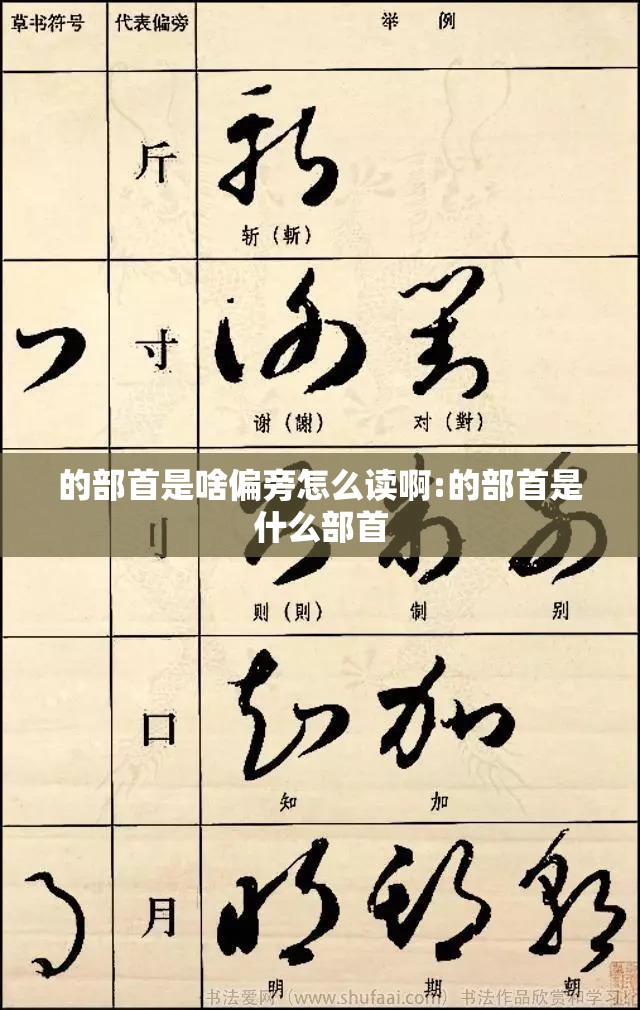 草书符号 代表偏旁 举 例
斤
斩（斬）
寸
谢（謝） 对（對）
的部首是啥偏旁怎么读啊:的部首是
什么部首
刂
则（則） 制 别
口
知 加
月
明 期 朝
书法爱网（www.shufaai.com）书法作品欣赏和学习